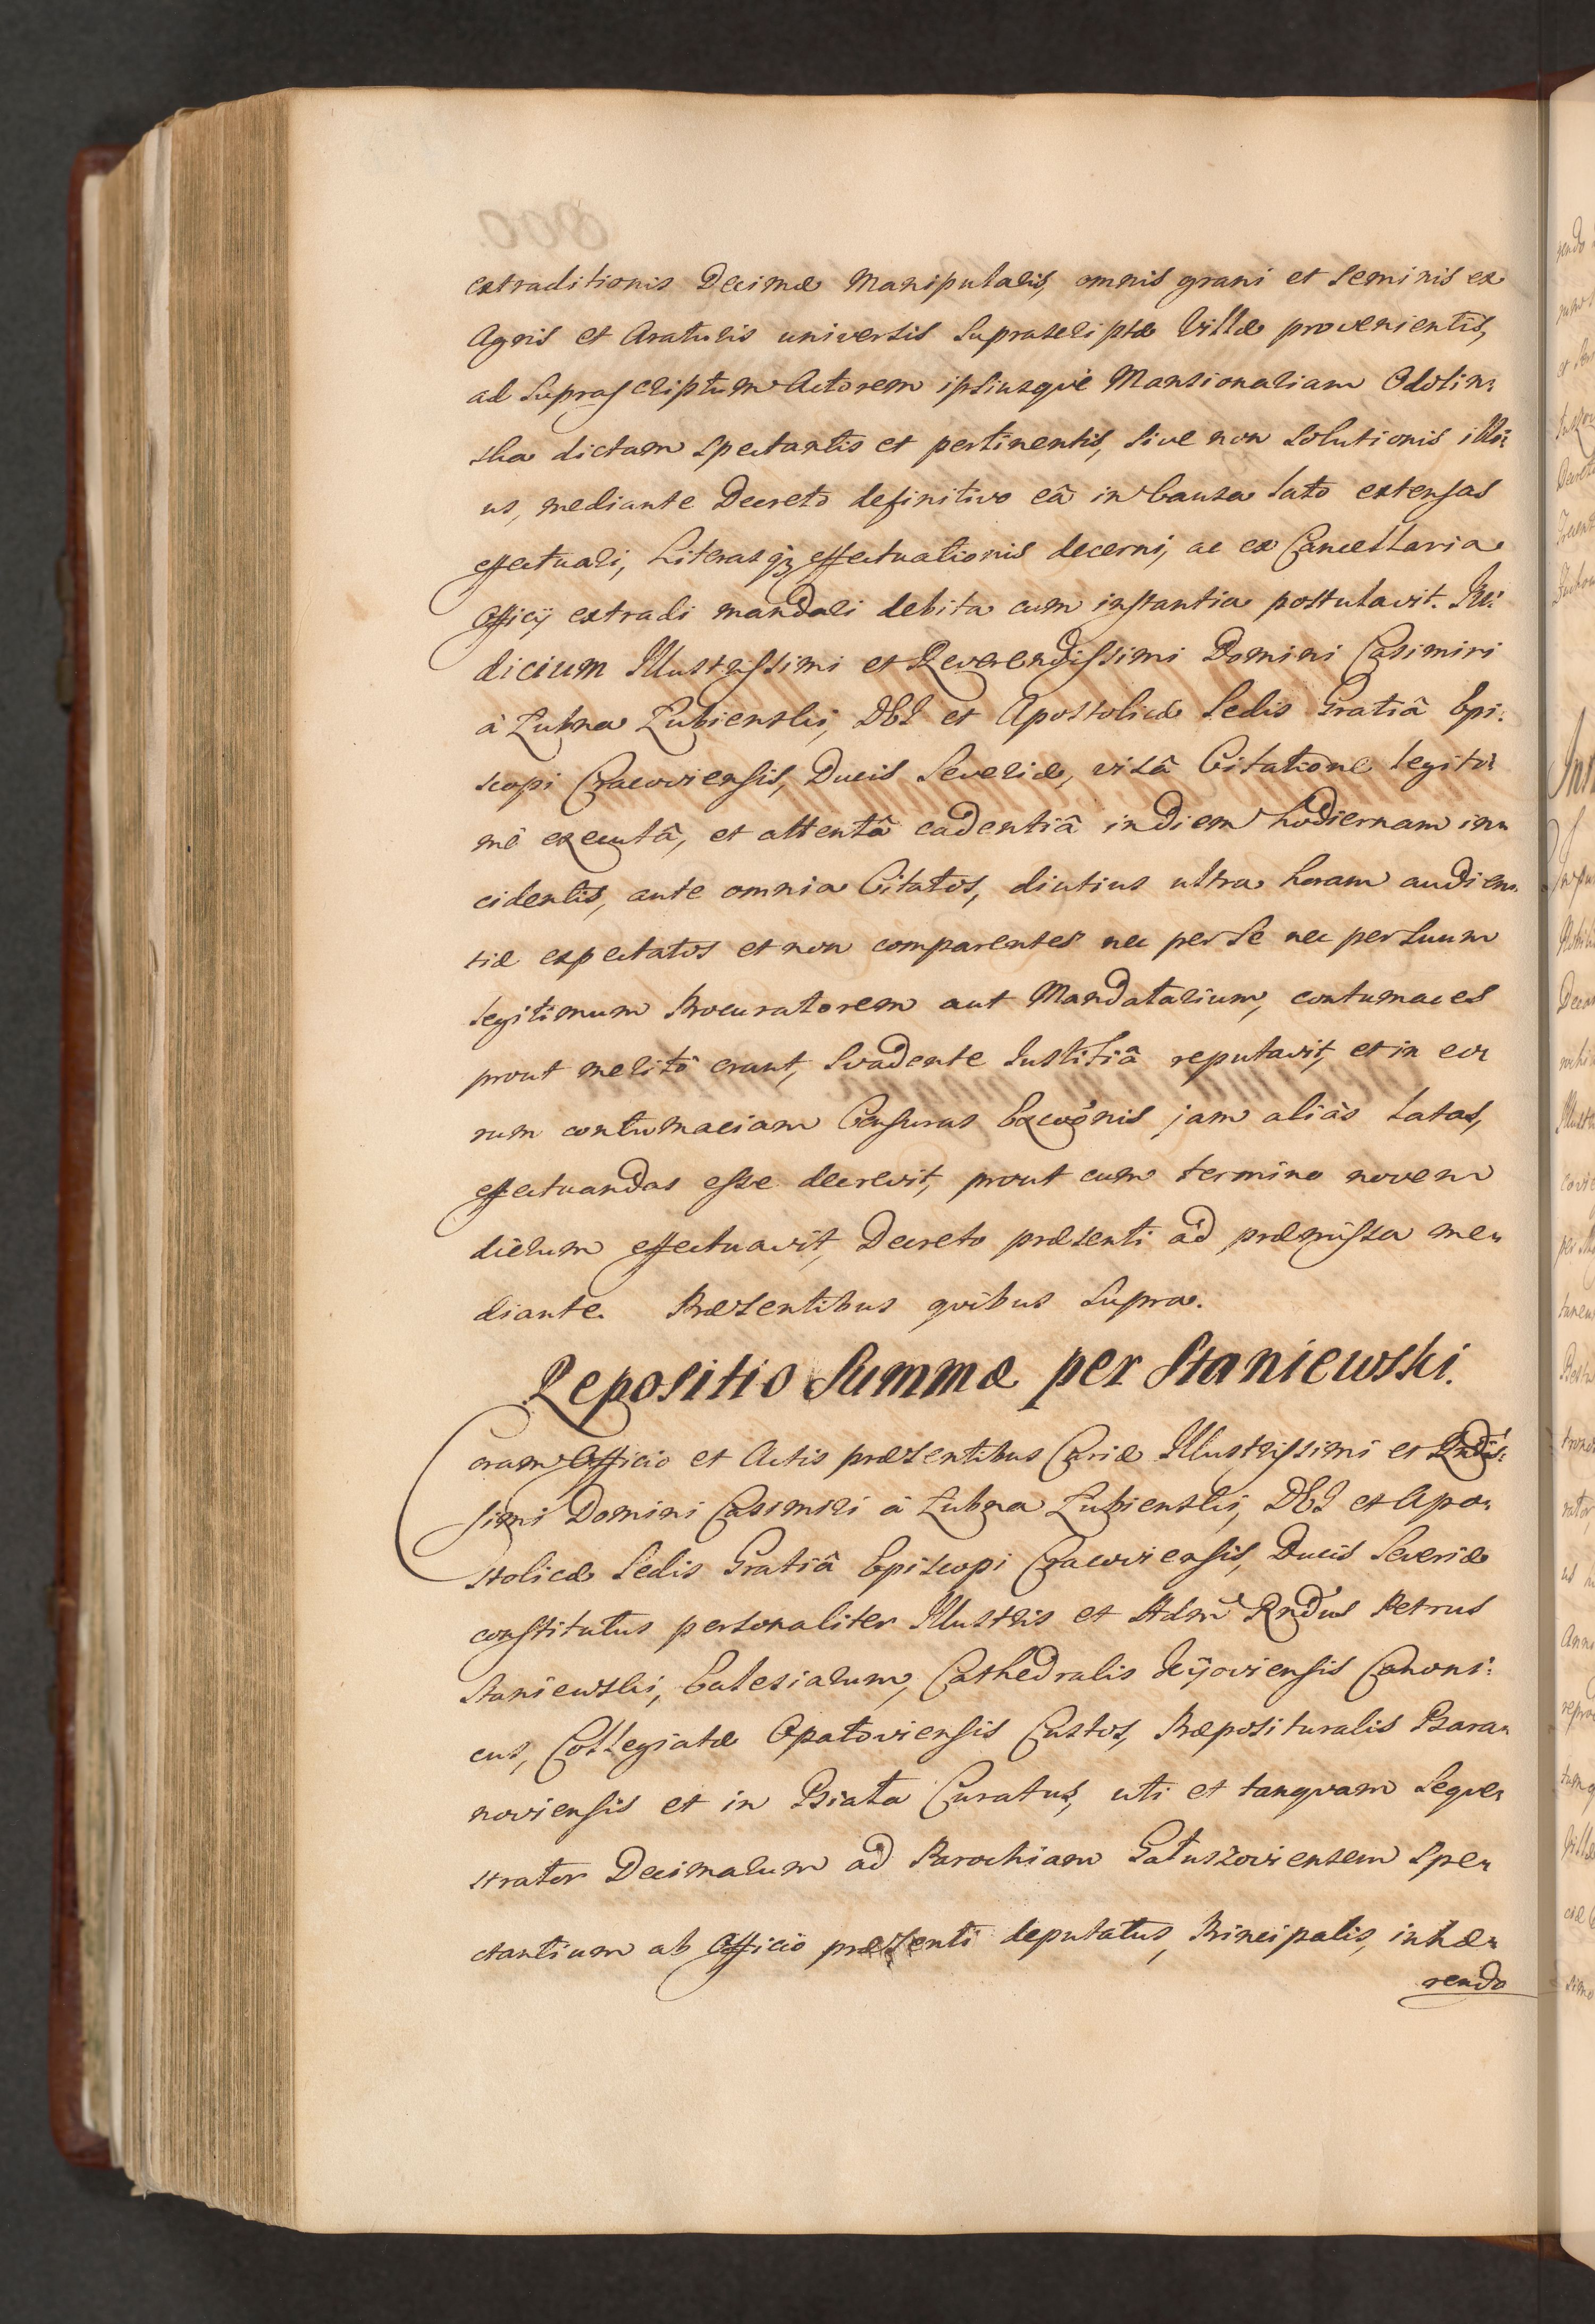 extraditionis Decimæ Manipularis, omnis grani et Seminis ex
Agris et Araturis universis Suprascriptæ Villæ provenientis,
ad Suprascriptum Actorem ipsiusqve Mansionariam Odolin:
ska dictam spectantis et pertinentis, sive non solutionis illi:
us, mediante Decreto definitivo eâ in Causa lato extensas
effectuari, Literasqz effectuationis decerni, ac ex Cancellaria
Officij extradi mandari debita cum instantia postulavit. Iu:
dicium Illustrissimi et Reverendissimi Domini Casimiri
à Łubna Łubienski, DEI et Apostolicæ Sedis Gratiâ Epi:
scopi Cracoviensis, Ducis Severiæ, visâ Citatione legiti:
mè executâ, et attentâ cadentiâ in diem hodiernam in„
cidentis, ante omnia Citatos, diutius ultra horam audien„
tiæ expectatos et non comparentes nec per se nec per suum
legitimum Procuratorem aut Mandatarium, contumaces
prout meritò erant, Svadente Iustitiâ reputavit, et in eo
rum contumaciam Censuras Excoõnis jam aliàs latas,
effectuandas esse decrevit, prout cum termino novem
dierum effectuavit, Decreto præsenti ad præmissa me„
diante. Præsentibus qvibus Supra.
Repositio Summæ per Staniewski.
Coram Officio et Actis præsentibus Curiæ Illustrissimi et Rndis:
simi Domini Casimiri à Łubna Łubienski, DEI et Apo„
stolicæ Sedis Gratiâ Episcopi Cracoviensis, Ducis Severiæ
constitutus personaliter Illustris et Adm̃ Rndus Petrus
Staniewski, Ecclesiarum, Cathedralis Kijoviensis Canoni:
cus, Collegiatæ Opatoviensis Custos, Præposituralis Bara„
noviensis et in Biała Curatus, uti et tanqvam Seqve„
strator Decimarum ad Parochiam Gałuszoviensem spe„
ctantium ab Officio præsenti deputatus, Principalis, inhæ„
rendo